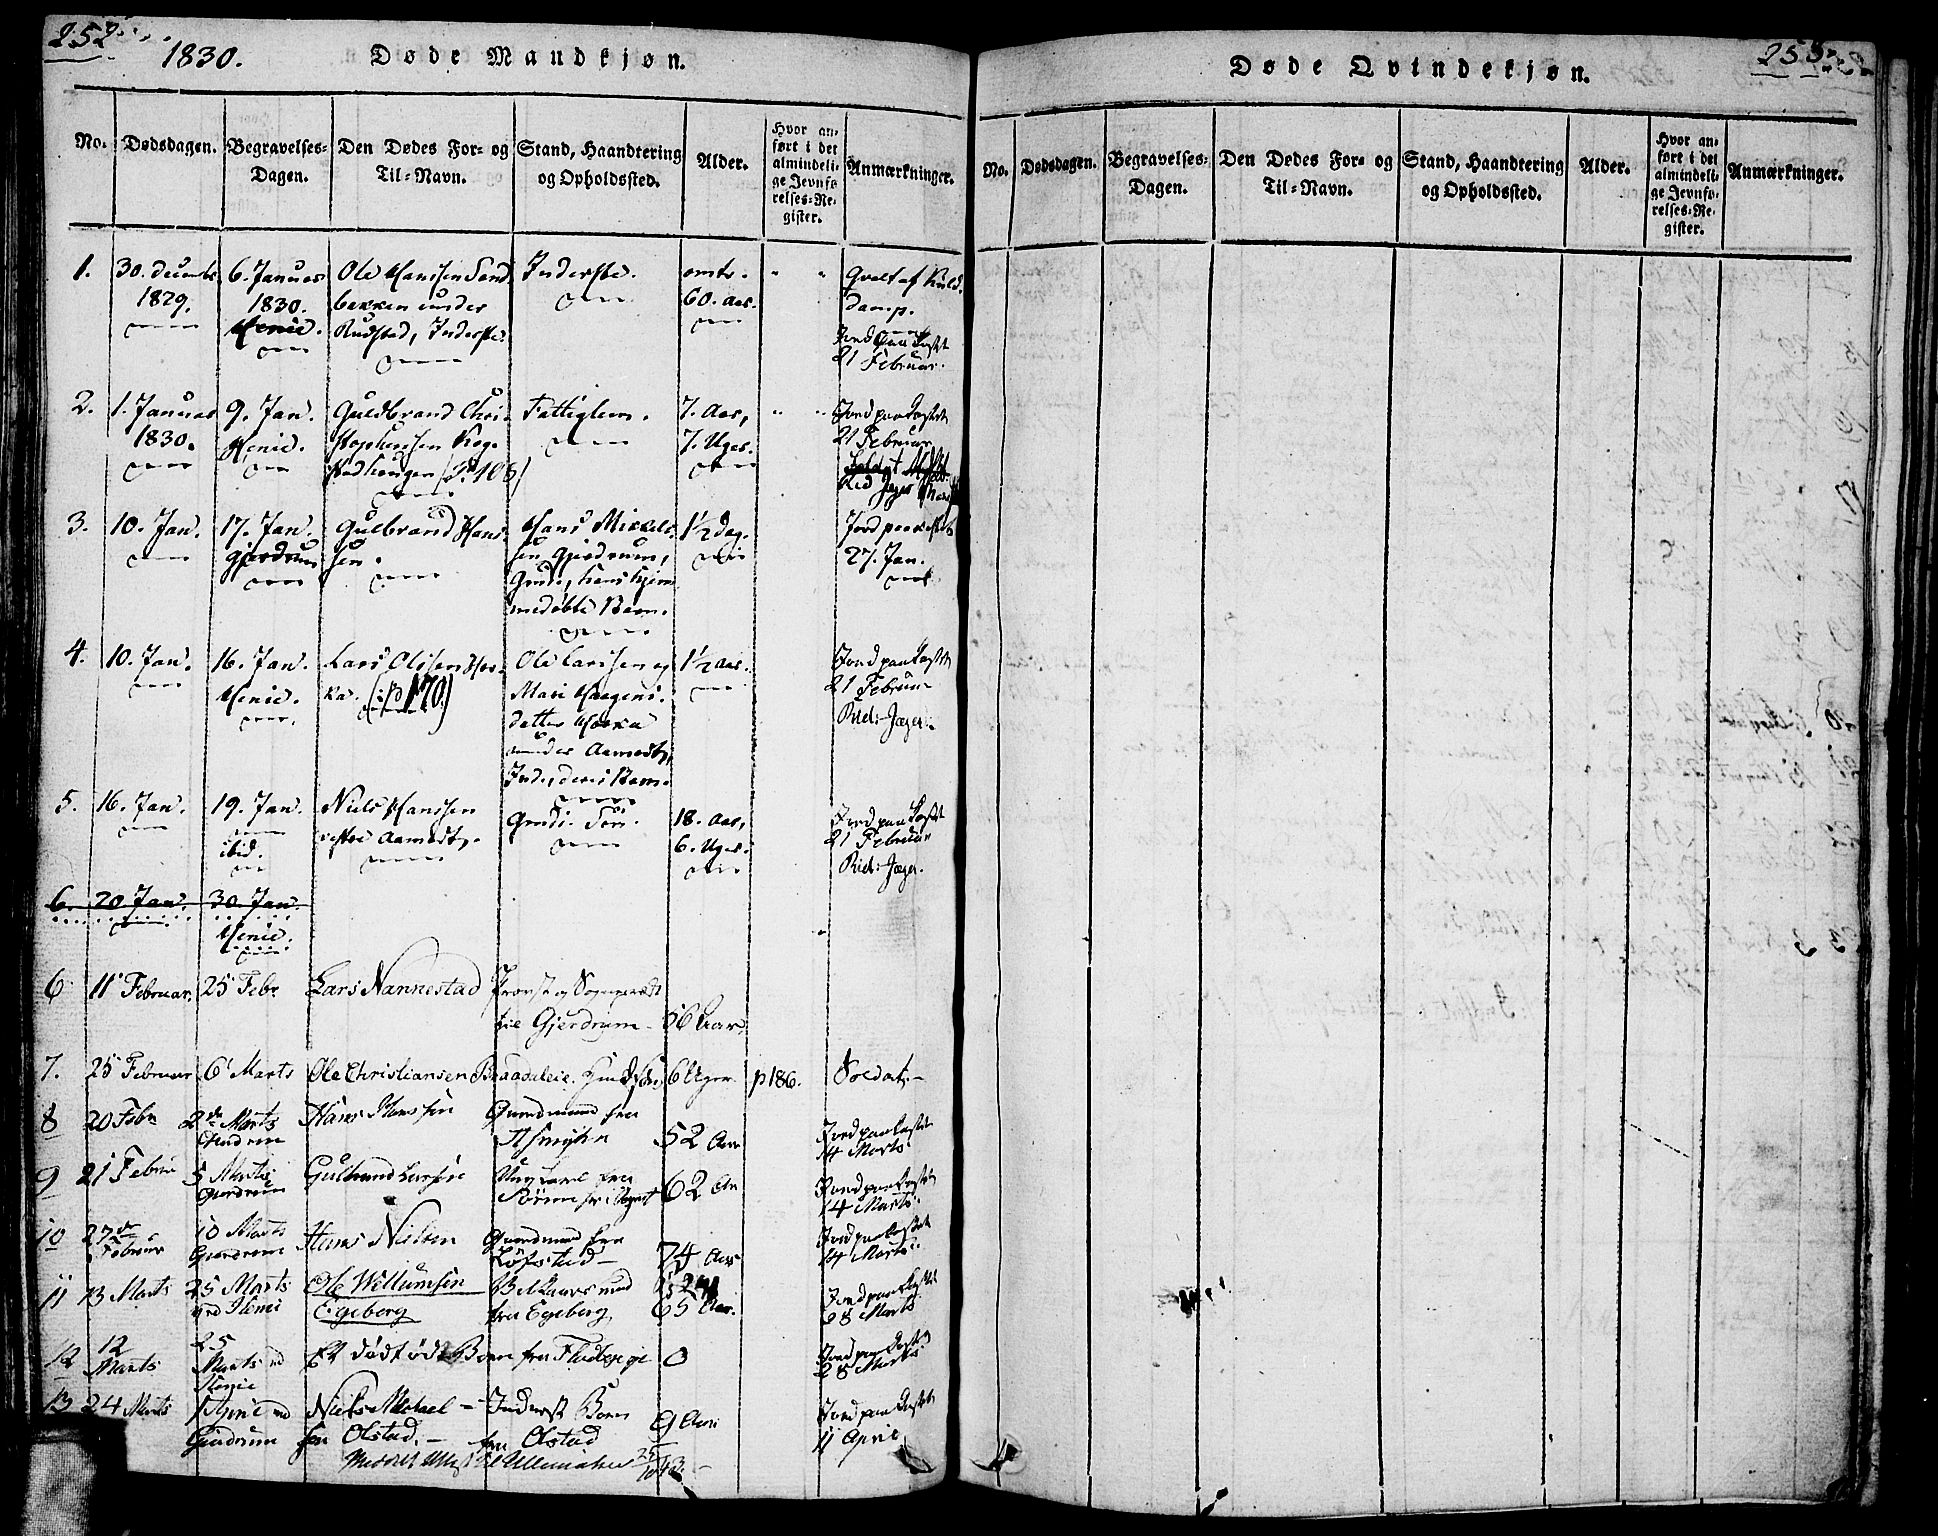 252
1830.
Døde Mandkjøn.
No.
Dødsdagen.
Begravelses-
Dagen.
Den Dødes For- og
Til-Navn.
Stand, Haandtering
og Opholdssted.
Alder.
Hvor an-
ført i det
almindeli-
ge Jevnfø-
relses-Re-
gister.
Anmærkninger.
1.
30. decembr
1829.
6. Januar
1830.
Henie.
Ole Hanssen Sand-
bekken under
Rudstad, Inderste.
Inderste.
omtr.
60. Aar.
" "
Qvalt af Kuld-
damp.
Jord paakastet
21 Februar.
2.
1. Januar
1830.
9. Jan.
Henie.
Guldbrand Chri-
stophersen
Fattiglem.
7. Aar,
7. Uger.
" "
Jord paakastet
21 Februar
3.
10. Jan.
17. Jan.
Gjerdrum
Gulbrand Hans-
sen.
Hans Mikkels-
sen Gjerdrum,
Grdb., hans hjem-
medøbte Barn.
1½ Dag.
Jord paakastet
27. Jan.
4.
10. Jan.
16. Jan.
Henie.
Lars Olssen Her-
ka. (:p 170)
Ole Larssen og
Mari Haagens-
datter
under Aamodt,
Ind., deres Barn.
1½ Aar.
Jord paakastet
21 Februar
Rid: Jæger.
5.
16. Jan.
19. Jan.
ibid.
Niels Hanssen
vestre Aamodt.
Grdb. Søn.
18. Aar,
6. Uger.
Jord paakastet
21 Februar
Rid: Jæger.
6. 20 Jan. 30 Jan.
Henie.
6
11 Februar
25 Febr
Lars Nannestad
Provst og Sognepræst
til Gjerdrum
56 Aar
7.
25 Februar
6 Marts
Ole Christiansen Braadaleie.
6 Uger
p 186.
Soldat.
8
20 Febr
2de Marts
Gierdrum
Hans Hanssen
Gaardmand fra
52 Aar
Jord paakastet
14 Marts
9
21 Februar
5 Marts
Gierdrum
Gulbrand Larsen
fra
62 Aar
Jord paakastet
14 Marts
10
27de
Februar
10 Marts
Gierdrum
Hans Nielsen
Gaardmand fra
Løfstad
74 Aar
Jord paakastet
14 Marts
11
13 Marts
25 Marts
ved Henie
Ole Willumsen
Egeberg
fra Egeberg
65 Aar
Jord paakastet
28 Marts
12
12
Marts
25
Marts ved
Henie
Et dødfødt Barn fra
0
Jord paakastet
28 Marts
13
24 Marts
1 April ved
Gierdrum
Niels Michael
fra Olstad.
Inderst Barn
fra Olstad
9 Aar
Jord paakastet
11 April
Døde Qvindekjøn.
253
No.
Dødsdagen.
Begravelses-
Dagen.
Den Dødes For- og
Til-Navn.
Stand, Haandtering
og Opholdssted.
Alder.
Hvor an-
ført i det
almindeli-
ge Jevnfø-
relses-Re-
gister.
Anmærkninger.